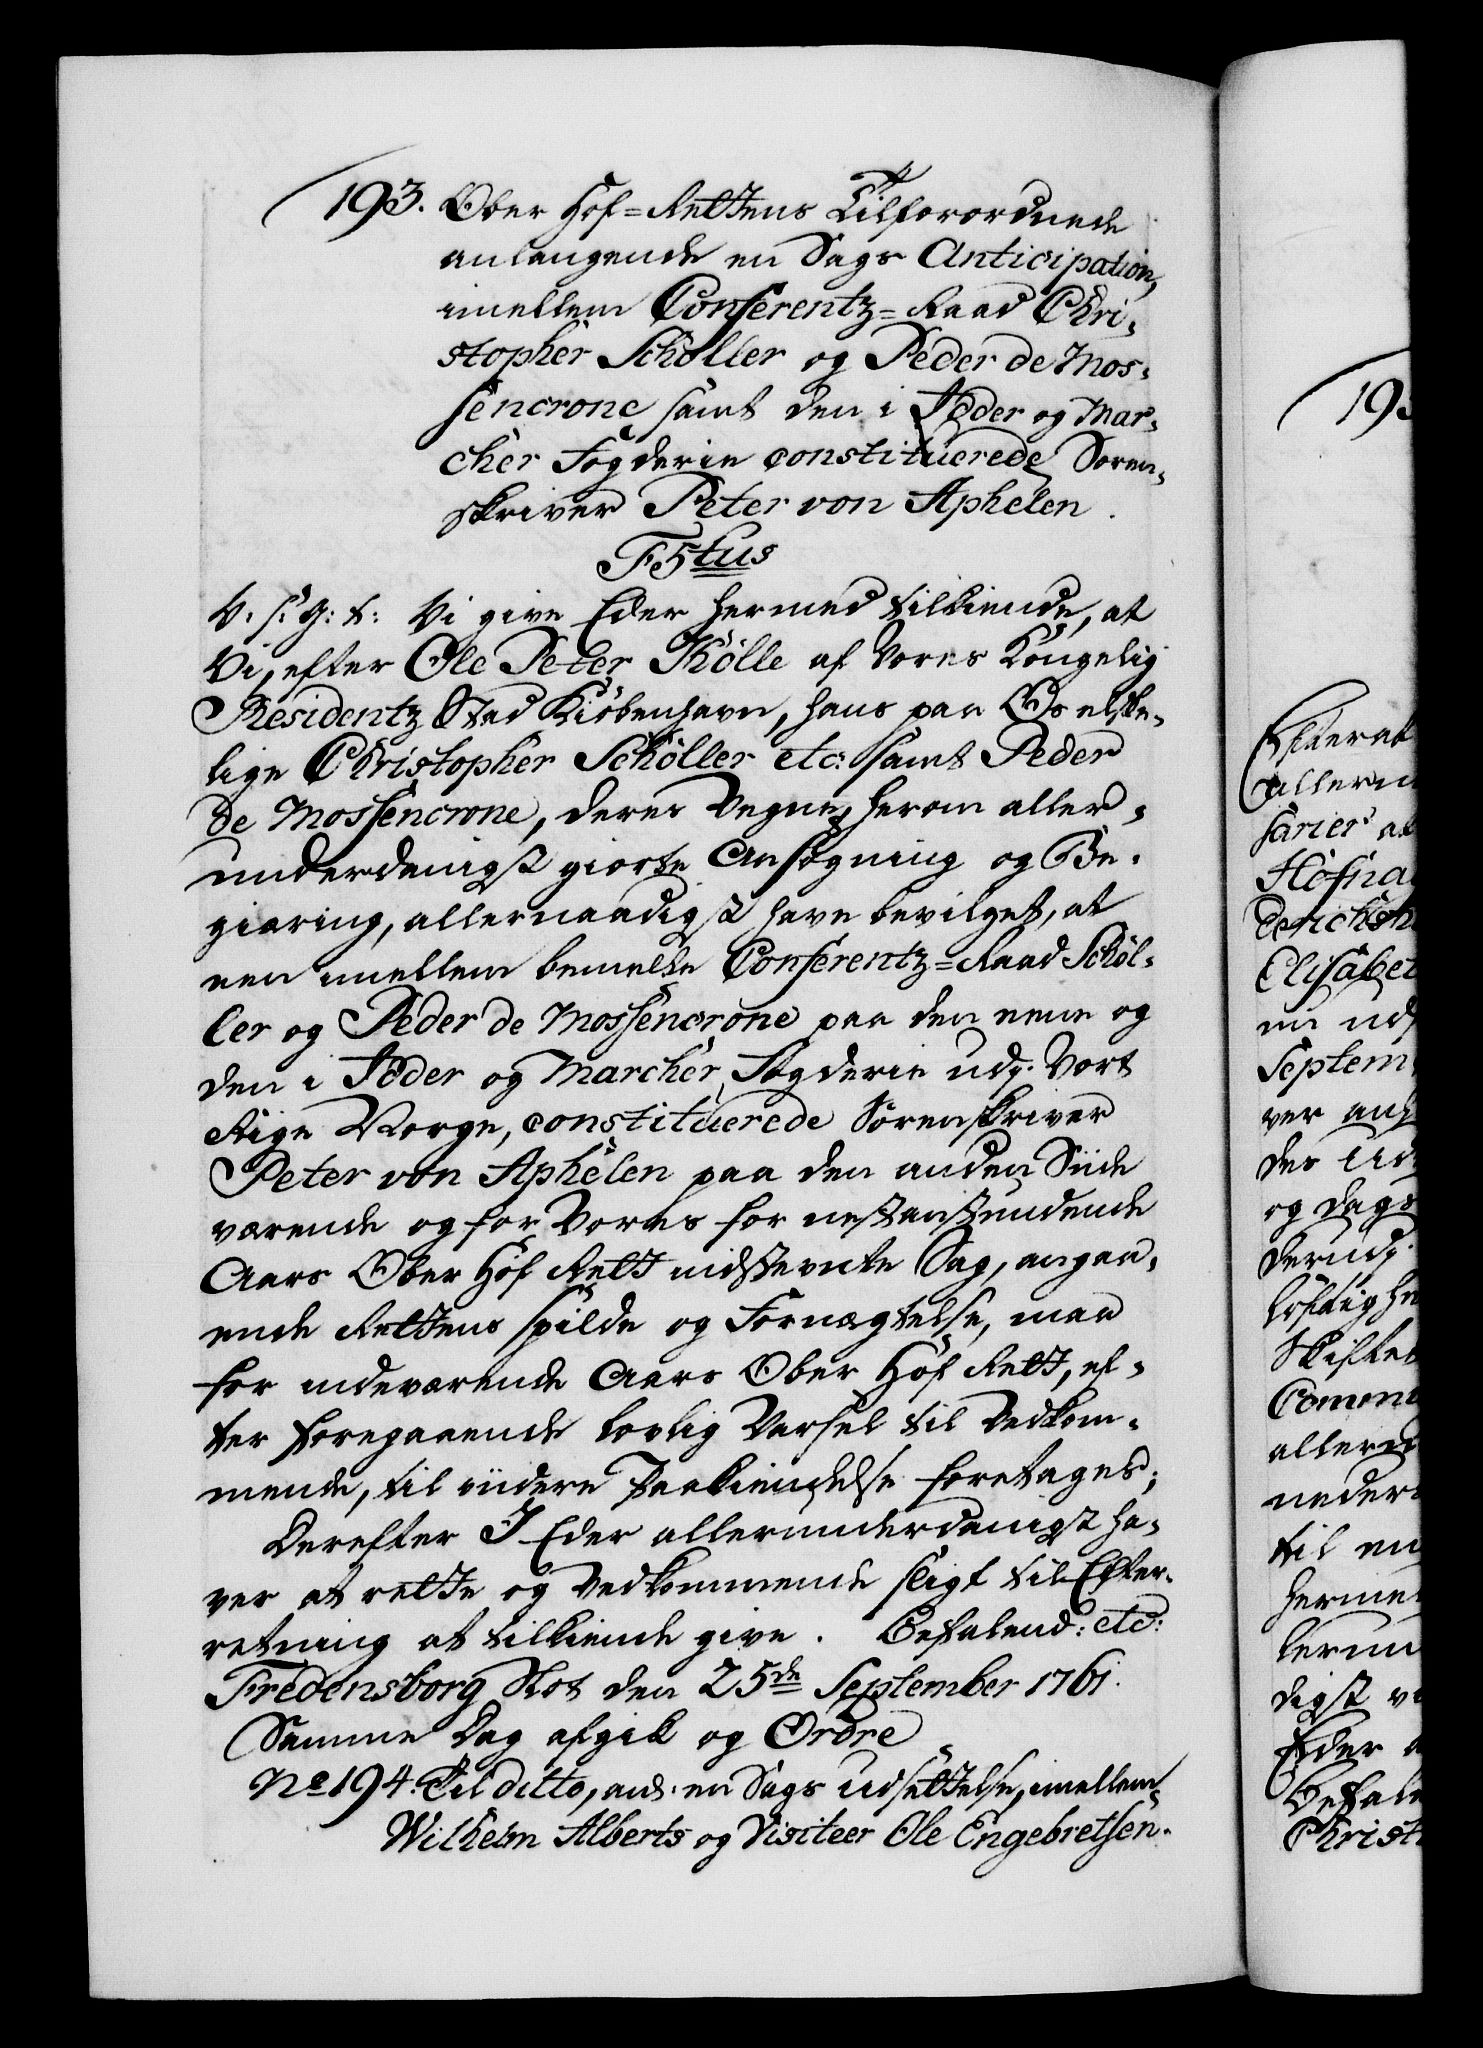 193. Ober Hof-Rettens Tilforordnede
anlangende en Sags Anticipation,
imellem Conferentz-Raad Chri-
stopher Schøller og Peder de Mos-
sencrone samt den i Jeder og Mar-
cher Fogderie constituerede Soren-
skriver Peter von Aphelen.
F5tus
V. s. G: t: Vi give Eder hermed tilkiende, at
Vi, efter Ole Peter Kølle af Vores Kongelig
Residentz Stad Kiøbenhavn, hans paa Os elske-
lige Christopher Schøller etc: samt Peder
de Mossencrone, deres Vegne, herom aller-
underdanigst giorte Ansøgning og Be-
giæring, allernaadigst have bevilget, at
een imellem bemelte Conferentz-Raad Schøl-
ler og Peder de Mossencrone paa den eene og
den i Jeder og Marcher Fogderie udj Vort
Rige Norge, constituerede Sorenskriver
Peter von Aphelen paa den anden Siide
værende og for Vores for nestanstundende
Aars Ober Hof Rett indstevnte Sag, angaa-
ende Rettens Spilde og Fornægtelse, maa
for indeværende Aars Ober Hof Rett, ef-
ter foregaaende lovlig Varsel til Vedkom-
mende, til iidere Paakiendelse foretages;
Derefter I Eder allerunderdanigst ha-
ver at rette og Vedkommende sligt til Efter-
retning at tilkiende give. Befalend: etc:
Fredensborg Slot den 25de September 1761.
Samme Dag afgik og Ordre
No 194. Til ditto, anl: en Sags Udsettelse, imellem
Wilhelm Alberts og Visiteer Ole Engebretsen.